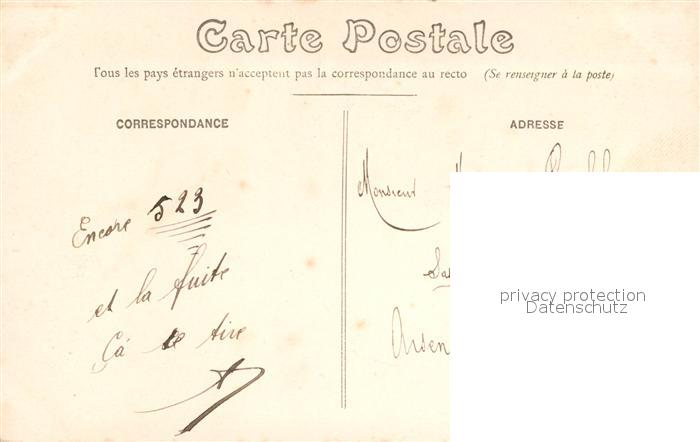 Carte Postale
Tous les pays étrangers n'acceptent pas la correspondance au recto (Se renseigner à la poste)
CORRESPONDANCE
ADRESSE
Monsieur
Encore 523
et la fuite
Ça se tire
Arsen
privacy protection
Datenschutz